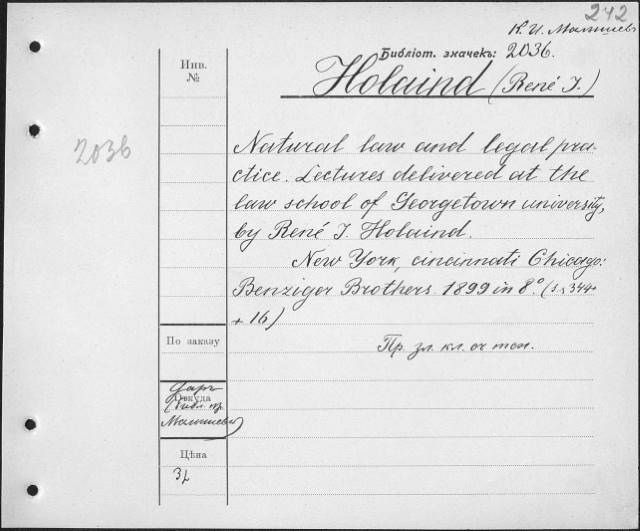 242
К. И. Малышев
Библіот. значекъ: 2036.
Инв.
№
Holaind (René I.)
2036
Natural law and legal pra-
ctice. Lectures delivered at the
law school of Georgetown university,
by René I. Holaind.
New York, cincinnati Chicago:
Benziger Brothers. 1899 in 8.° (s. 344
+ 16)
По заказу
Пр. зл. кл. оч тон.
Откуда
Даръ
(библ. пр.
Малышева)
Цѣна
3